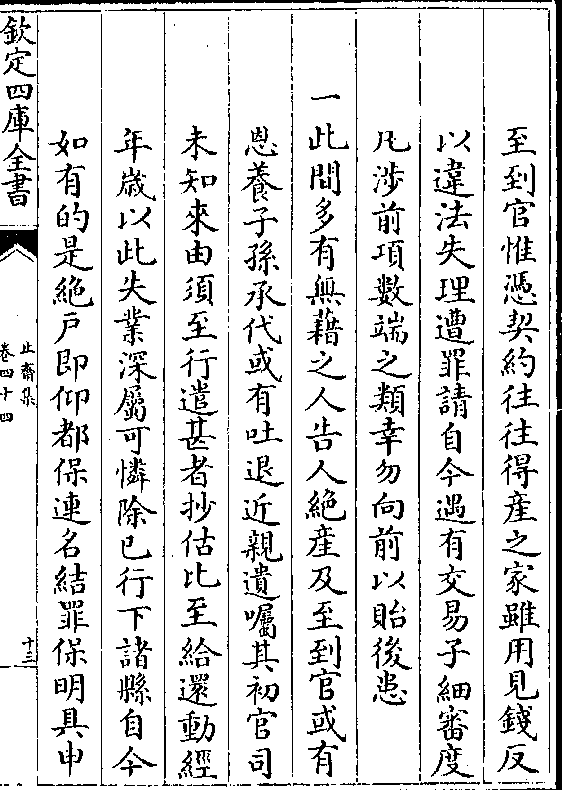 至到官惟憑契約往往得産之家雖用見錢反
以違法失理遭罪請自今遇有交易子細審度
凡涉前項數端之類幸勿向前以貽後患
一此間多有無藉之人告人絶産及至到官或有
恩養子孫承代或有吐退近親遺囑其初官司
未知來由須至行遣甚者抄估比至給還動經
年歲以此失業深屬可憐除已行下諸縣自今
如有的是絶戸即仰都保連名結罪保明具申
欽定四庫全書
止齋集
卷四十四
十三